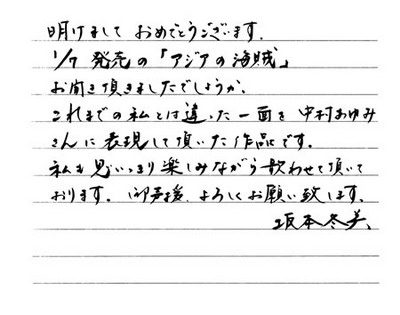 明けまして おめでとうございます.
1/7 発売の「アジアの海賊」
お聞き頂きましたでしょうか.
これまでの私とは違った一面を 中村あゆみ
さんに表現して頂いた作品です.
私も思いっきり楽しみながら歌わせて頂いて
おります. 御声援 よろしくお願い致します.
坂本冬美、